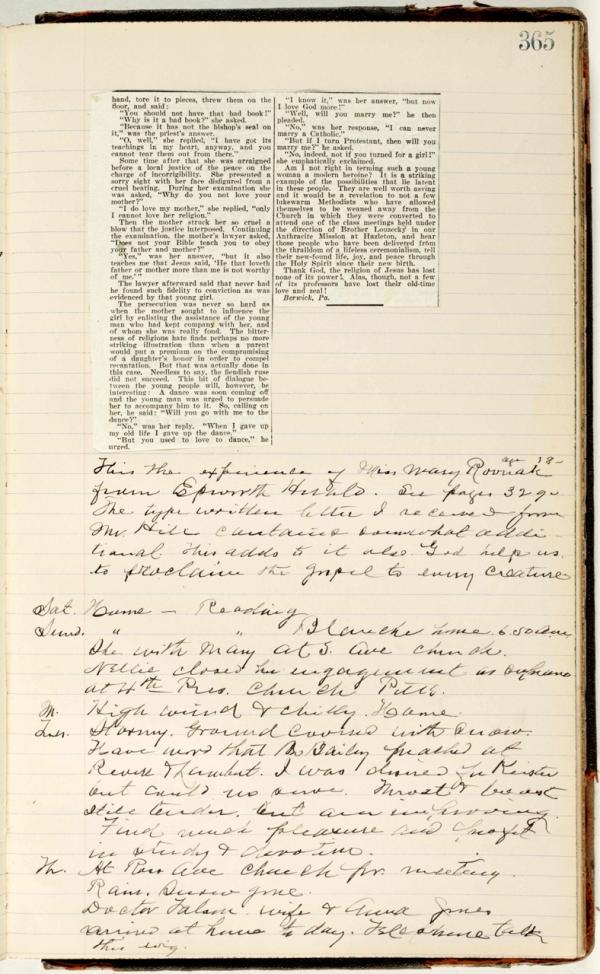 365
hand, tore it to pieces, threw them on the
floor, and said:
"You should not have that bad book!"
"Why is it a bad book?" she asked.
"Because it has not the bishop's seal on
it," was the priest's answer.
"O, well," she replied, "I have got its
teachings in my heart, anyway, and you
cannot tear them out from there."
Some time after that she was arraigned
before a local justice of the peace on the
charge of incorrigibility. She presented a
sorry sight with her face disfigured from a
cruel beating. During her examination she
was asked, "Why do you not love your
mother?"
"I do love my mother," she replied, "only
I cannot love her religion."
Then the mother struck her so cruel a
blow that the justice interposed. Continuing
the examination, the mother's lawyer asked,
"Does not your Bible teach you to obey
your father and mother?"
"Yes," was her answer, "but it also
teaches me that Jesus said, 'He that loveth
father or mother more than me is not worthy
of me.'"
The lawyer afterward said that never had
he found such fidelity to conviction as was
evidenced by that young girl.
The persecution was never so hard as
when the mother sought to influence the
girl by enlisting the assistance of the young
man who had kept company with her, and
of whom she was really fond. The bitter-
ness of religious hate finds perhaps no more
striking illustration than when a parent
would put a premium on the compromising
of a daughter's honor in order to compel
recantation. But that was actually done in
this case. Needless to say, the fiendish ruse
did not succeed. This bit of dialogue be-
tween the young people will, however, be
interesting: A dance was soon coming off
and the young man was urged to persuade
her to accompany him to it. So, calling on
her, he said: "Will you go with me to the
dance?"
"No," was her reply. "When I gave up
my old life I gave up the dance."
"But you used to love to dance," he
urged.
"I know it," was her answer, "but now
I love God more!"
"Well, will you marry me?" he then
pleaded.
"No," was her response, "I can never
marry a Catholic."
"But if I turn Protestant, then will you
marry me?" he asked.
"No, indeed, not if you turned for a girl!"
she emphatically exclaimed.
Am I not right in terming such a young
woman a modern heroine? It is a striking
example of the possibilities that lie latent
in these people. They are well worth saving
and it would be a revelation to not a few
lukewarm Methodists who have allowed
themselves to be weaned away from the
Church in which they were converted to
attend one of the class meetings held under
the direction of Brother Louzecky in our
Anthracite Mission at Hazleton, and hear
those people who have been delivered from
the thralldom of a lifeless ceremonialism, tell
their new-found life, joy, and peace through
the Holy Spirit since their new birth.
Thank God, the religion of Jesus has lost
none of its power! Alas, though, not a few
of its professors have lost their old-time
love and zeal!
Berwick, Pa.
age 18-
This the experience of Miss Mary Rovnak
from Epworth Herald. See pages 329-
The type written letter I received from
Mr. Hill contains somewhat addi-
tional. This adds to it also. God help us
to proclaim the gospel to every creature
Sat. Home - Reading
Sund. " " Blanche home 6.50
She with Mary at 5. Ave church.
Nellie closed her engagement as Soprano
at 4th Pres. Church Pitts.
M. High wind & chilly. Home
Tues. Stormy. Ground covered with snow.
Have word that B. Bailey preached at
& Lambert. I was desired in
but could not serve. Throat & breast
still tender. but am improving.
Find much pleasure and profit
in study & devotion.
Th. At Ross Ave church pr. meeting.
Rain. Snow gone.
Doctor wife & Anna Jones
arrived at home to day. talk
this evig.